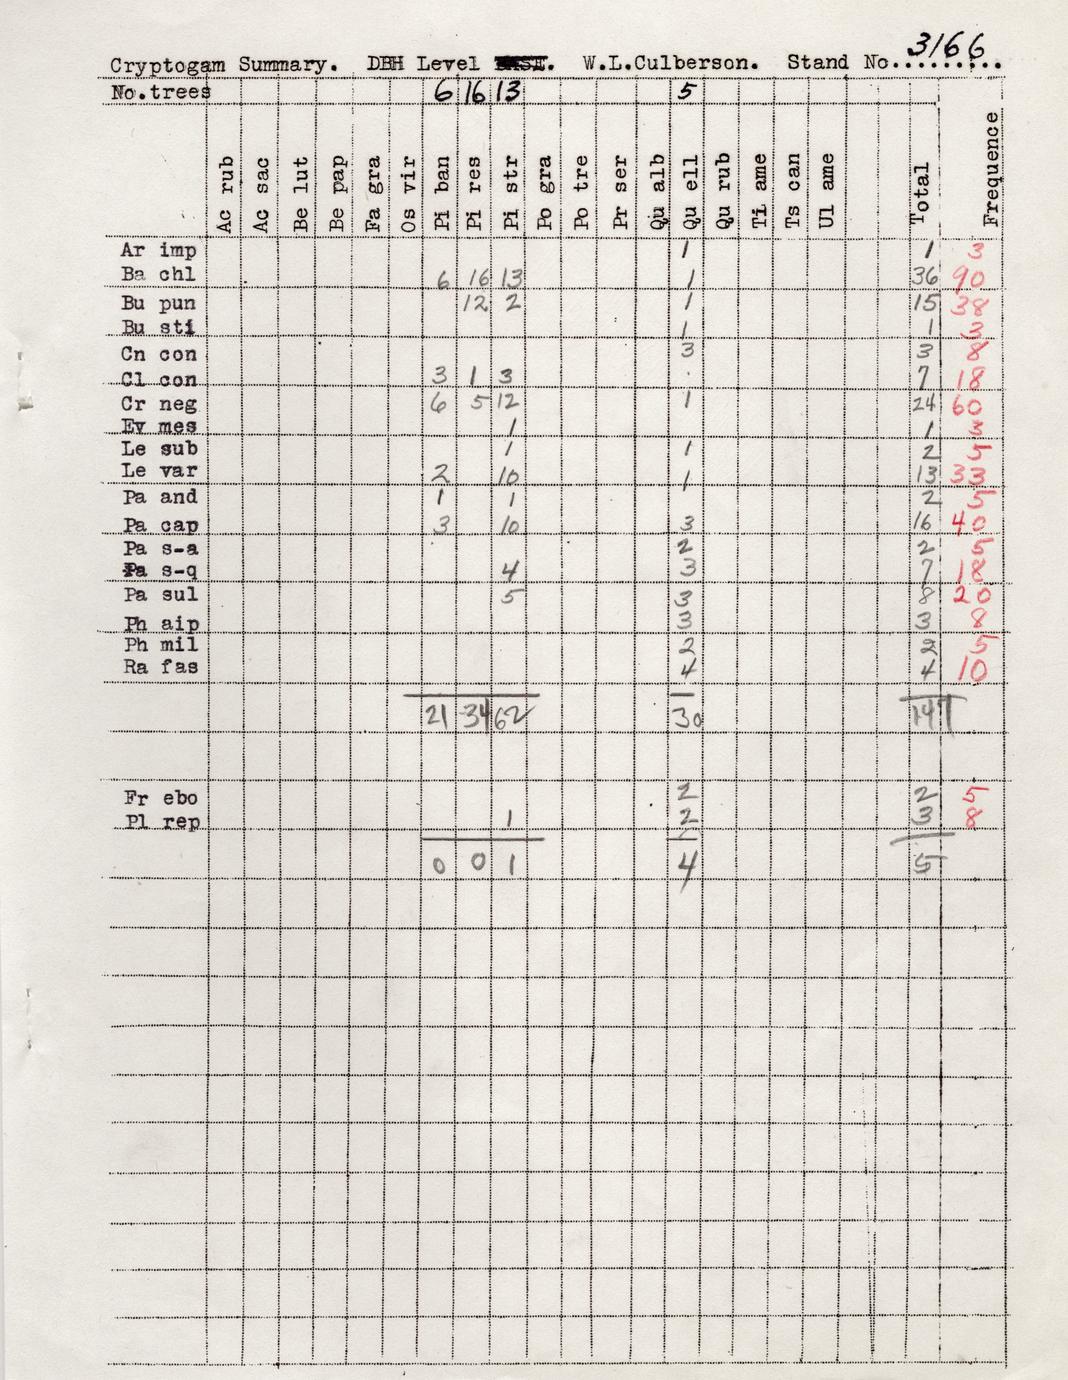 Cryptogam Summary. DBH Level . W.L.Culberson. Stand No.3166
No.trees 6 16 13 5
Ac rub Ac sac Be lut Be pap Fa gra Os vir Pi ban Pi res Pi str Po gra Po tre Pr ser Qu alb Qu ell Qu rub Ti ame Ts can Ul ame Total Frequence
Ar imp 1 1 3
Ba chl 6 16 13 1 36 90
Bu pun 12 2 1 15 38
Bu sti 1 1 3
Cn con 3 3 8
Cl con 3 1 3 7 18
Cr neg 6 5 12 1 24 60
Ev mes 1 1 3
Le sub 1 1 2 5
Le var 2 10 1 13 33
Pa and 1 1 2 5
Pa cap 3 10 3 16 40
Pa s-a 2 2 5
Pa s-q 4 3 7 18
Pa sul 5 3 8 20
Ph aip 3 3 8
Ph mil 2 2 5
Ra fas 4 4 10
21 34 62 30 147
Fr ebo 2 2 5
Pl rep 1 2 3 8
0 0 1 4 5